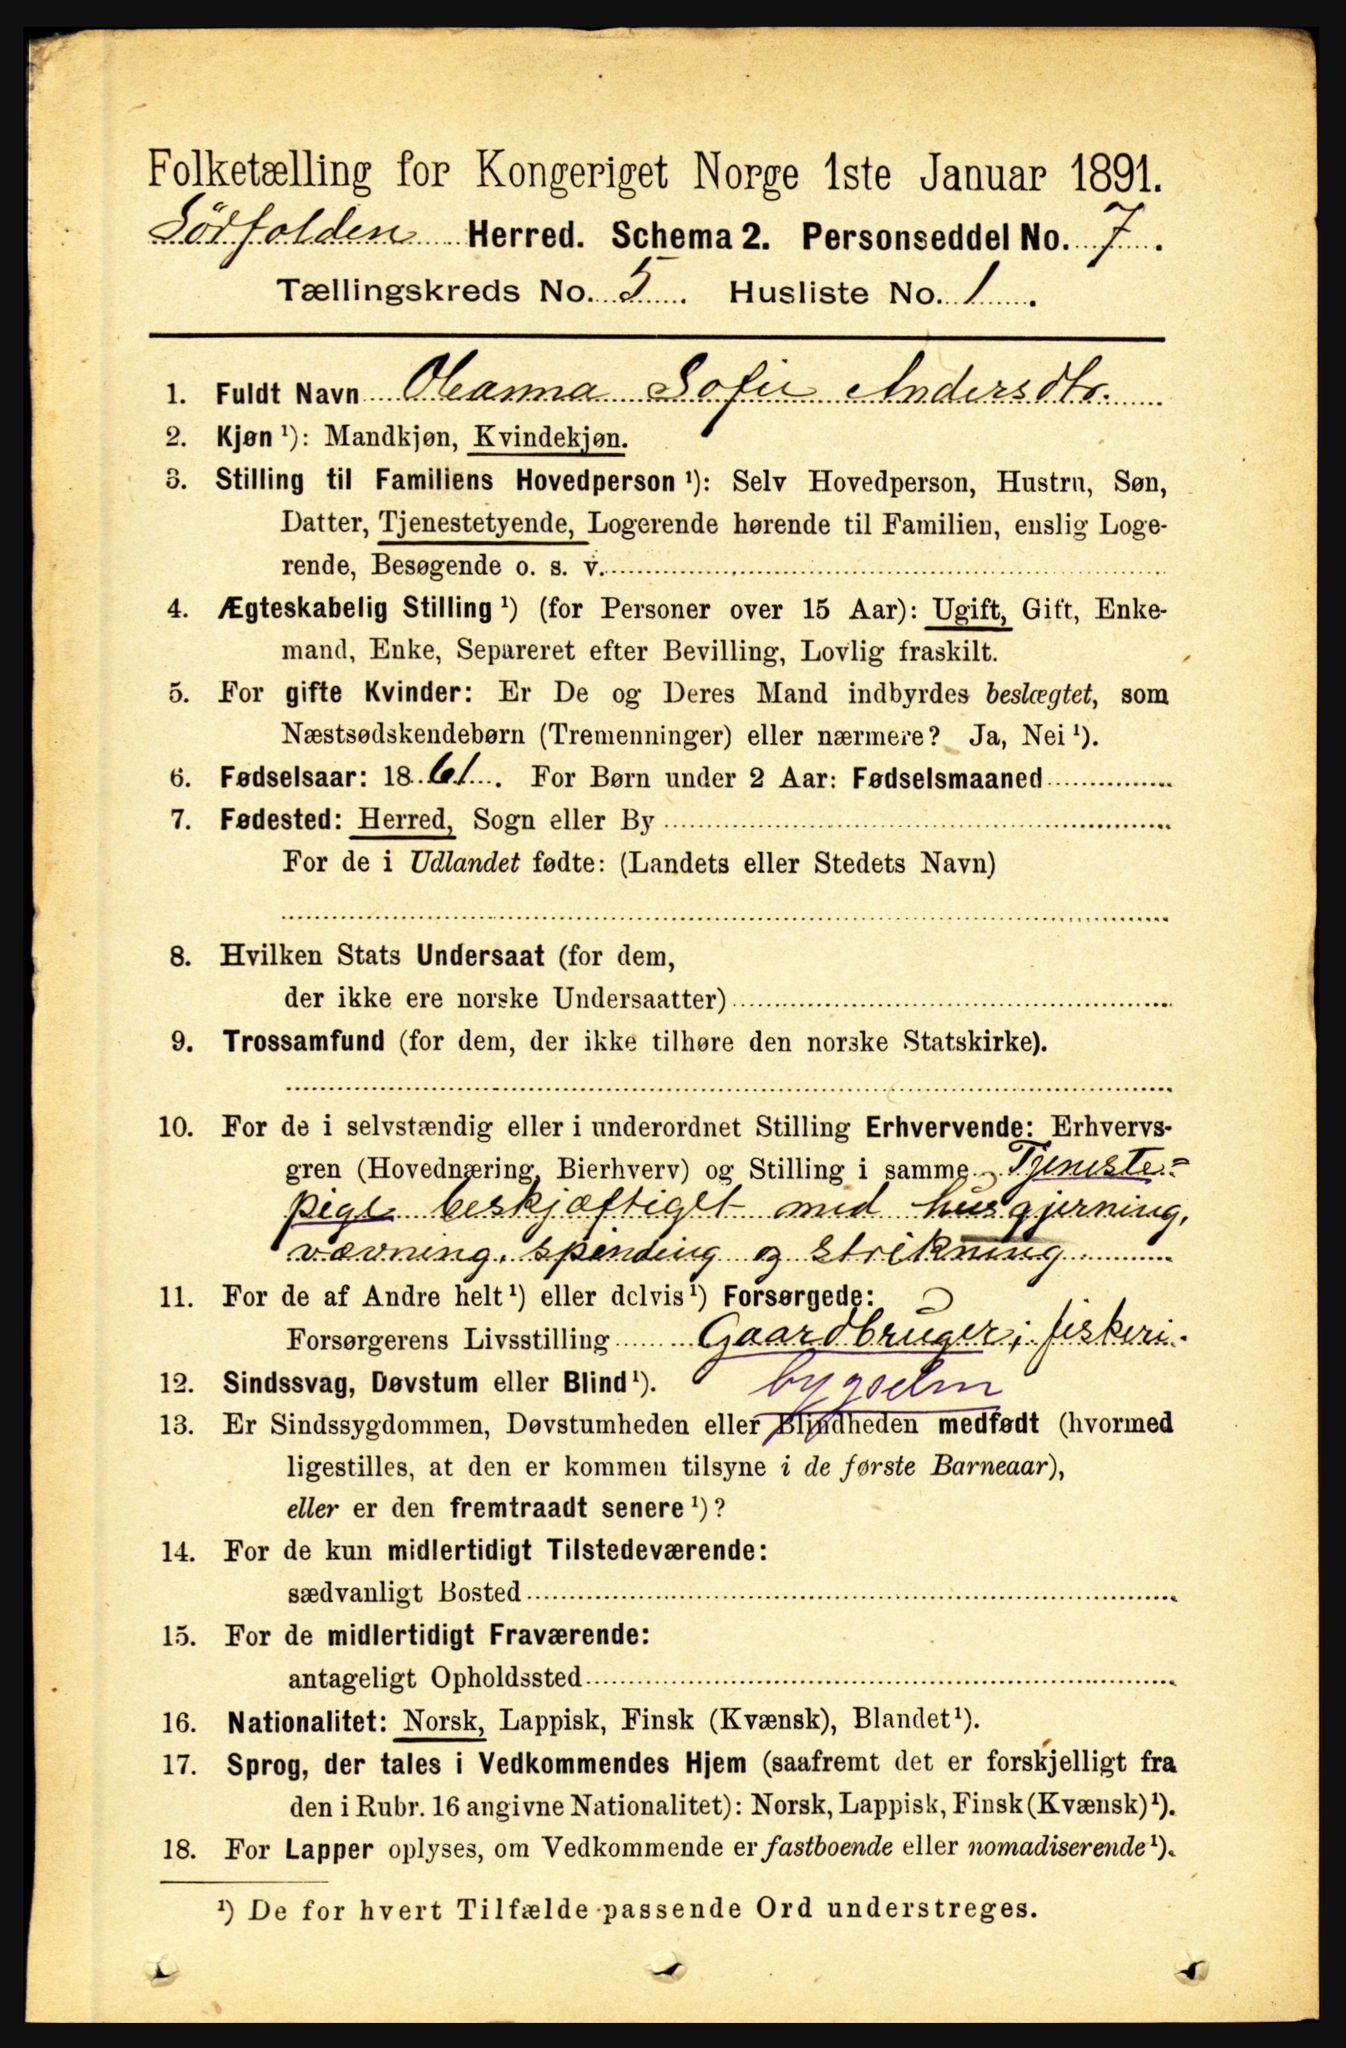 Folketælling for Kongeriget Norge 1ste Januar 1891.
Sørfolden Herred. Schema 2. Personseddel No. 7.
Tællingskreds No. 5. Husliste No. 1.
1. Fuldt Navn Oleanna Sofie Andersdtr.
2. Kjøn ¹): Mandkjøn, Kvindekjøn.
3. Stilling til Familiens Hovedperson ¹): Selv Hovedperson, Hustru, Søn,
Datter, Tjenestetyende, Logerende hørende til Familien, enslig Loge-
rende, Besøgende o. s. v.
4. Ægteskabelig Stilling ¹) (for Personer over 15 Aar): Ugift, Gift, Enke-
mand, Enke, Separeret efter Bevilling, Lovlig fraskilt.
5. For gifte Kvinder: Er De og Deres Mand indbyrdes beslægtet, som
Næstsødskendebørn (Tremenninger) eller nærmere? Ja, Nei ¹).
6. Fødselsaar: 1861. For Børn under 2 Aar: Fødselsmaaned
7. Fødested: Herred, Sogn eller By
For de i Udlandet fødte: (Landets eller Stedets Navn)
8. Hvilken Stats Undersaat (for dem,
der ikke ere norske Undersaatter)
9. Trossamfund (for dem, der ikke tilhøre den norske Statskirke).
10. For de i selvstændig eller i underordnet Stilling Erhvervende: Erhvervs-
gren (Hovednæring, Bierhverv) og Stilling i samme Tjeneste=
pige beskjæftiget med husgjerning,
vævning, spinding og strikning
11. For de af Andre helt ¹) eller delvis ¹) Forsørgede:
Forsørgerens Livsstilling Gaardbruger; fiskeri.
12. Sindssvag, Døvstum eller Blind ¹).
13. Er Sindssygdommen, Døvstumheden eller Blindheden medfødt (hvormed
ligestilles, at den er kommen tilsyne i de første Barneaar),
eller er den fremtraadt senere ¹)?
14. For de kun midlertidigt Tilstedeværende:
sædvanligt Bosted
15. For de midlertidigt Fraværende:
antageligt Opholdssted
16. Nationalitet: Norsk, Lappisk, Finsk (Kvænsk), Blandet ¹).
17. Sprog, der tales i Vedkommendes Hjem (saafremt det er forskjelligt fra
den i Rubr. 16 angivne Nationalitet): Norsk, Lappisk, Finsk (Kvænsk) ¹).
18. For Lapper oplyses, om Vedkommende er fastboende eller nomadiserende ¹).
¹) De for hvert Tilfælde passende Ord understreges.